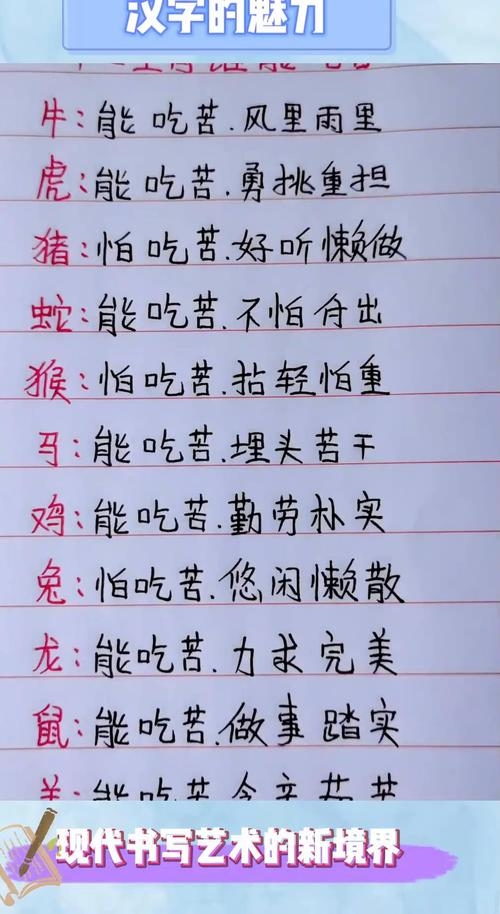 汉字的魅力
牛:能吃苦.风里雨里
虎:能吃苦.勇挑重担
猪:怕吃苦.好听懒做
蛇:能吃苦.不怕付出
猴:怕吃苦.拈轻怕重
马:能吃苦.埋头苦干
鸡:能吃苦.勤劳朴实
兔:怕吃苦.悠闲懒散
龙:能吃苦.力求完美
鼠:能吃苦.做事踏实
羊:能吃苦.含辛茹苦
现代书写艺术的新境界